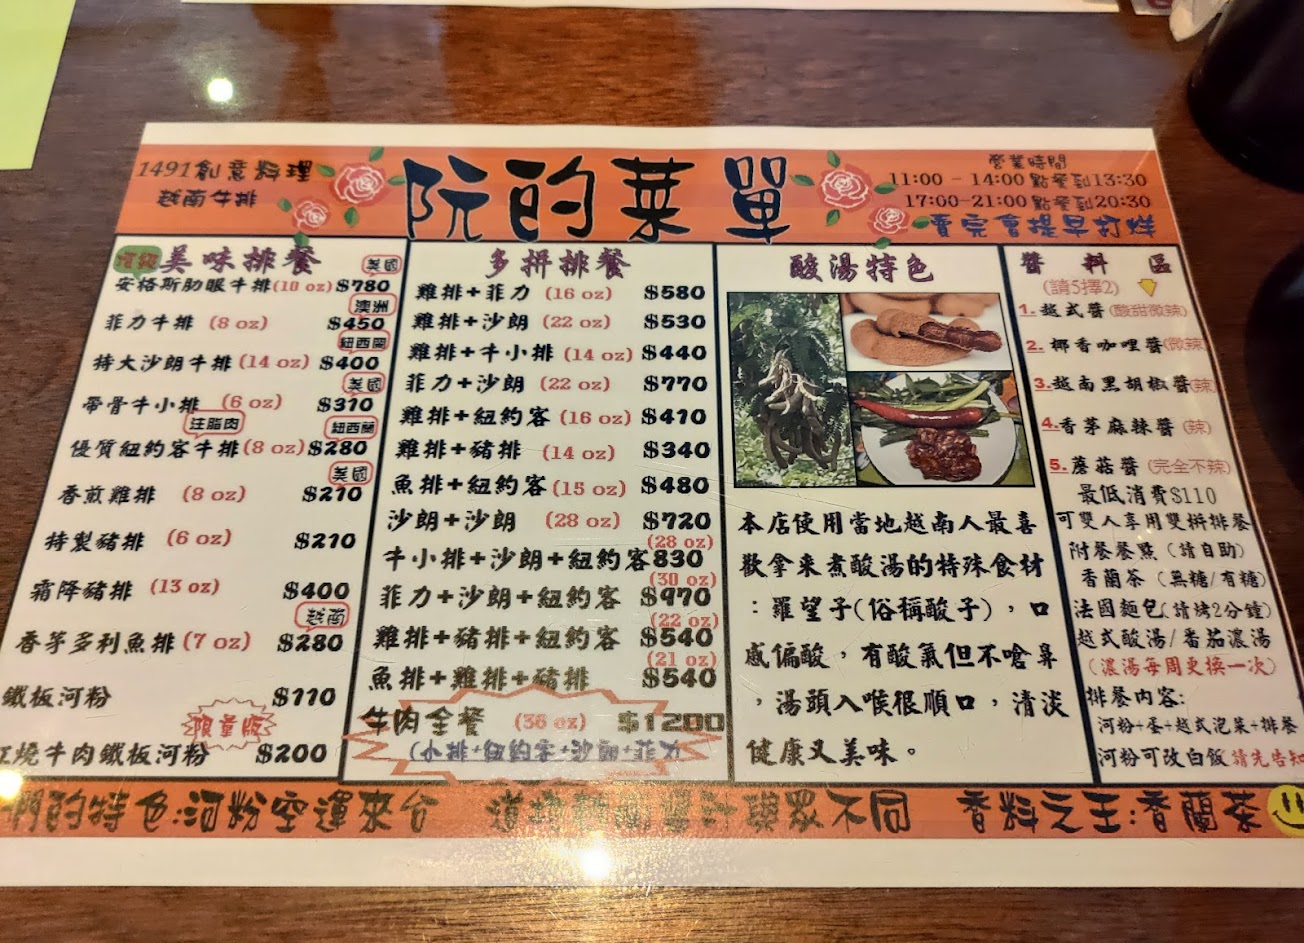 1491創意料理
越南牛排
阮的菜單
營業時間
11:00 - 14:00 點餐到13:30
17:00-21:00 點餐到20:30
賣完會提早打烊
美味排餐
美國
安格斯肋眼牛排(10 oz) $780
澳洲
菲力牛排 (8 oz) $450
紐西蘭
特大沙朗牛排(14 oz) $400
美國
帶骨牛小排 (6 oz) $310
注脂肉 紐西蘭
優質紐約客牛排(8 oz) $280
美國
香煎雞排 (8 oz) $210
特製豬排 (6 oz) $210
霜降豬排 (13 oz) $400
越南
香茅多利魚排(7 oz) $280
鐵板河粉 $110
限量版
紅燒牛肉鐵板河粉 $200
多拼排餐
雞排+菲力 (16 oz) $580
雞排+沙朗 (22 oz) $530
雞排+牛小排 (14 oz) $440
菲力+沙朗 (22 oz) $770
雞排+紐約客 (16 oz) $410
雞排+豬排 (14 oz) $340
魚排+紐約客 (15 oz) $480
沙朗+沙朗 (28 oz) $720
(28 oz)
牛小排+沙朗+紐約客830
(30 oz)
菲力+沙朗+紐約客 $970
(22 oz)
雞排+豬排+紐約客 $540
(21 oz)
魚排+雞排+豬排 $540
牛肉全餐 (36 oz) $1200
酸湯特色
本店使用當地越南人最喜
歡拿來煮酸湯的特殊食材
：羅望子(俗稱酸子)，口
感偏酸，有酸氣但不嗆鼻
，湯頭入喉很順口，清淡
健康又美味。
醬料區
(請5擇2)
1.越式醬(酸甜微辣)
2.椰香咖哩醬(微辣)
3.越南黑胡椒醬(辣)
4.香茅麻辣醬(辣)
5.蘑菇醬(完全不辣)
最低消費$110
可雙人享用雙拼排餐
附餐餐點（請自助）
香蘭茶（無糖/有糖）
法國麵包(請烤2分鐘)
越式酸湯/番茄濃湯
(濃湯每周更換一次)
排餐內容:
河粉+蛋+越式泡菜+排餐
河粉可改白飯請先告知
們的特色:河粉空運來台 醬汁與眾不同 香料之王:香蘭茶